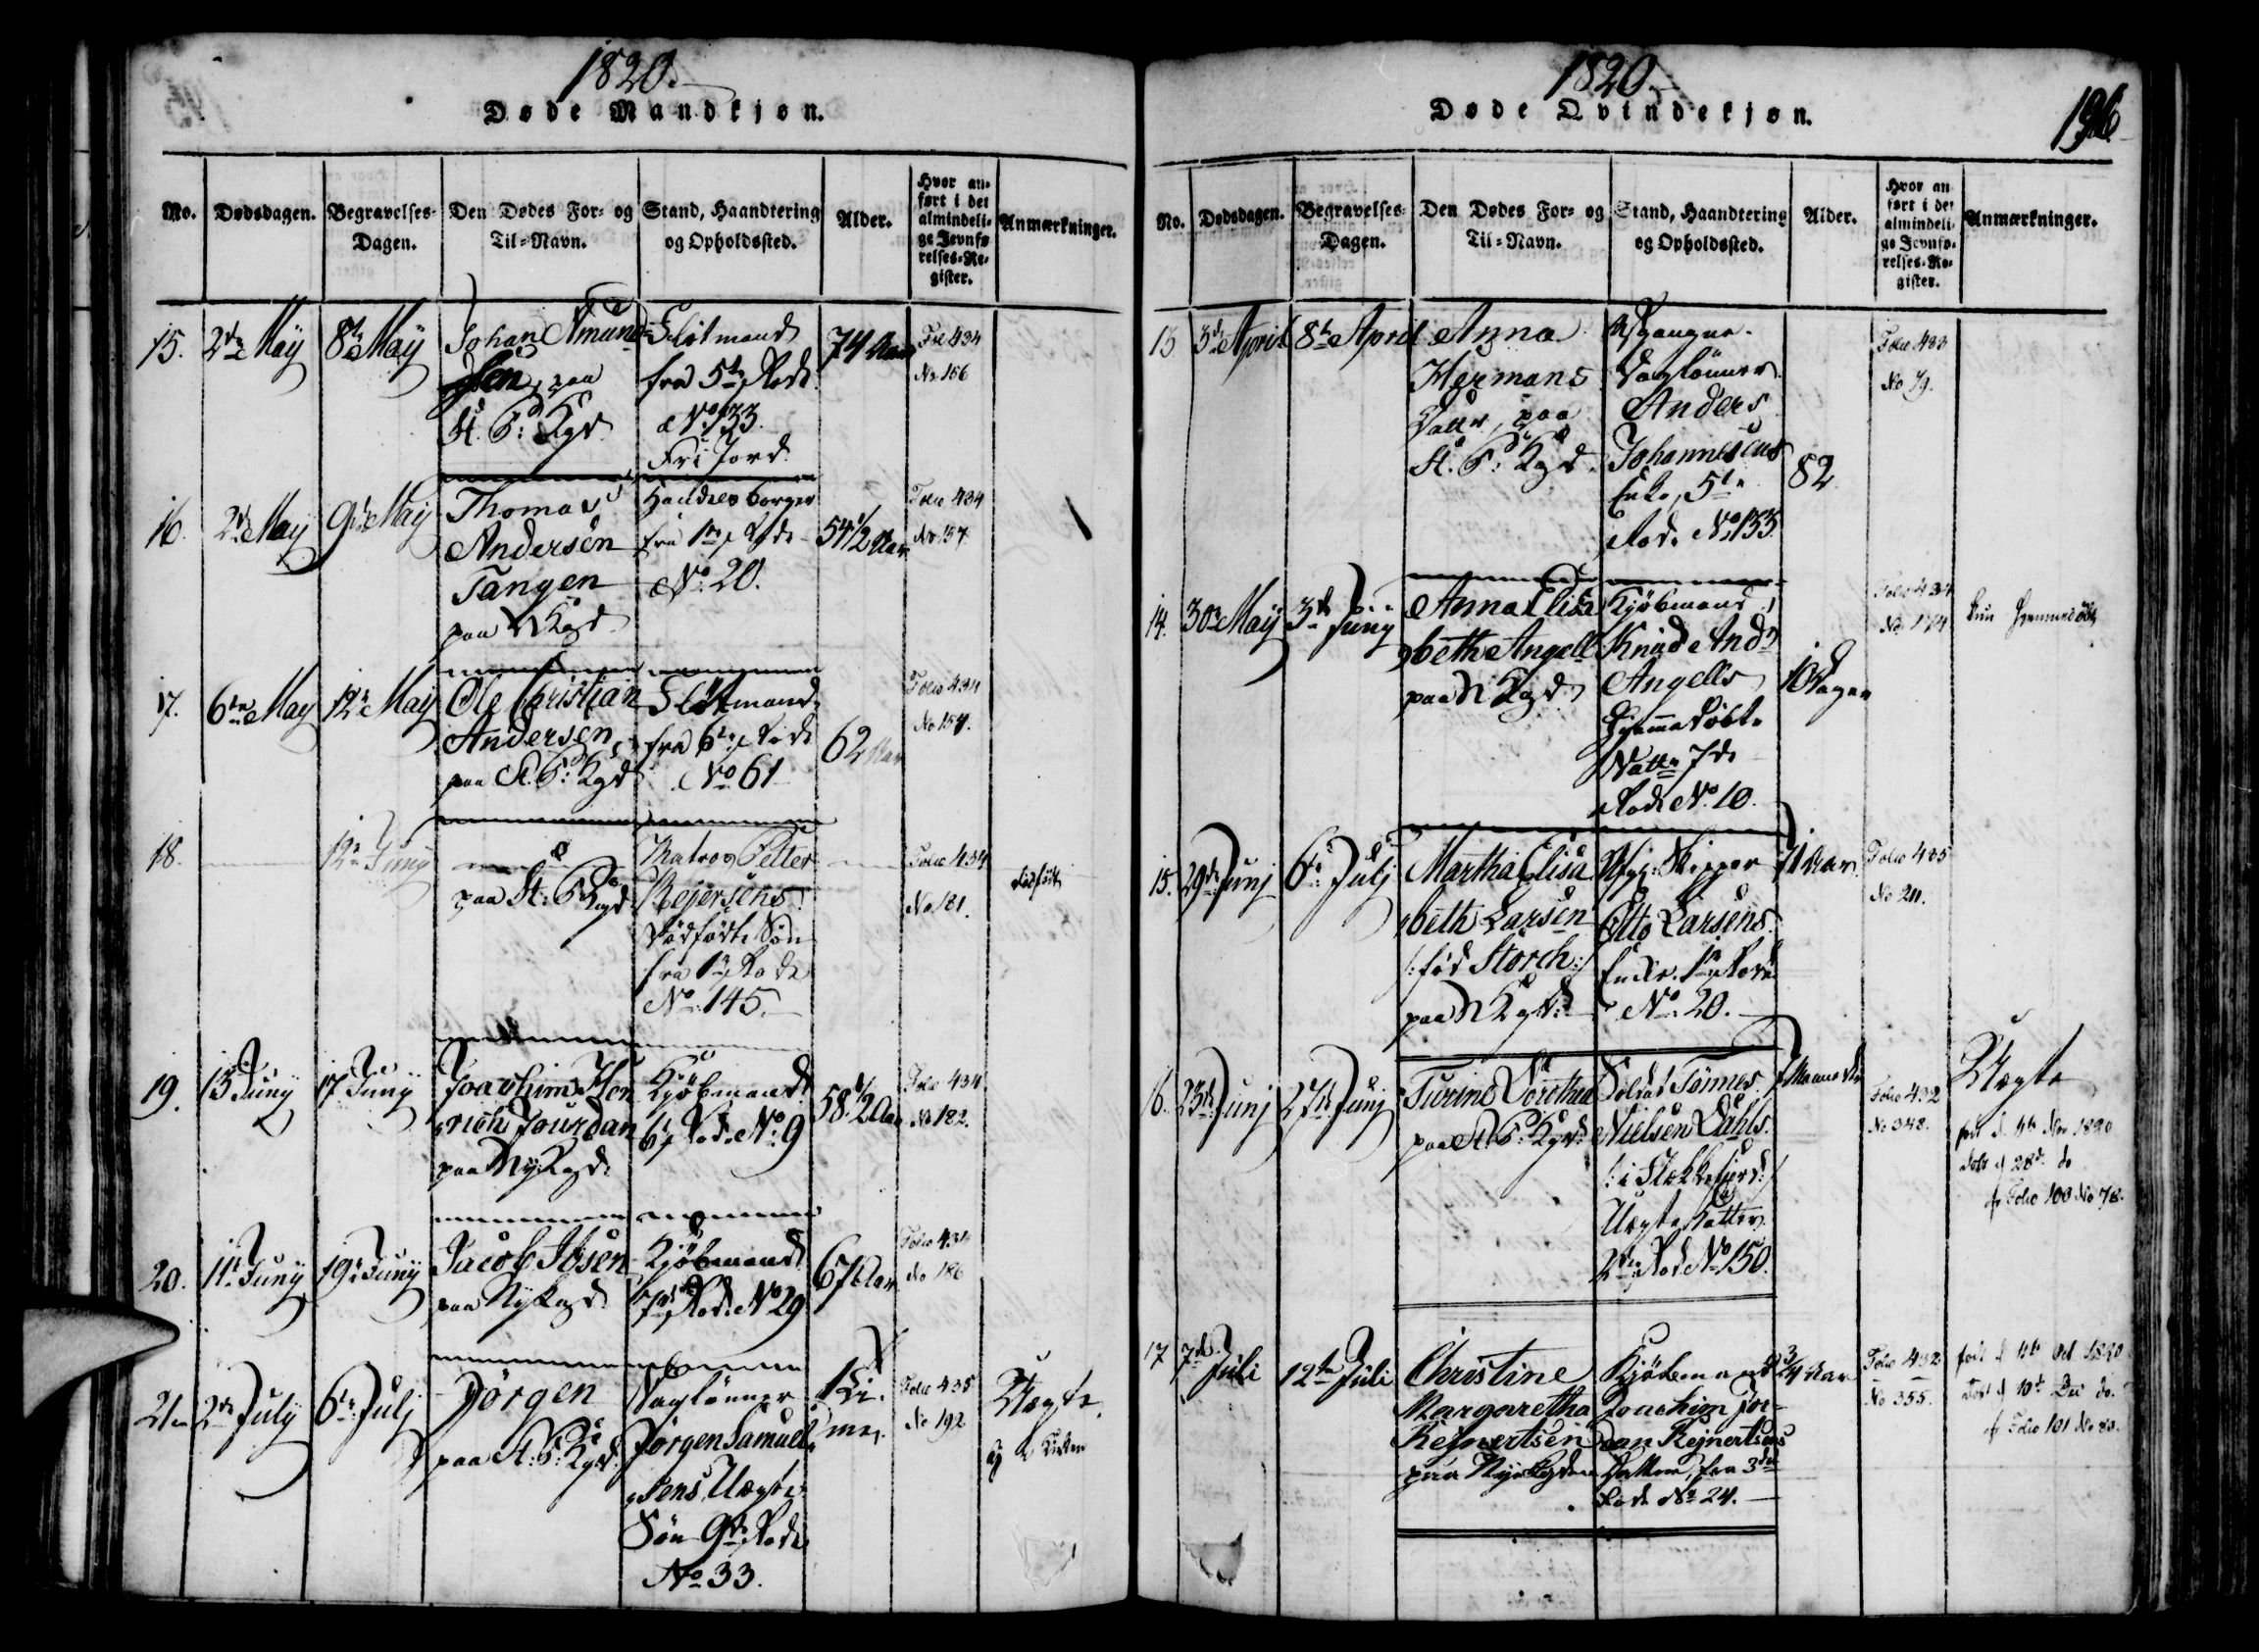 1820.
Døde Mandkjøn.
No.
Dødsdagen.
Begravelses-
Dagen.
Den Dødes For- og
Til-Navn.
Stand, Haandtering
og Opholdssted.
Alder.
Hvor an-
ført i det
almindeli-
ge Jevnfø-
relses-Re-
gister.
Anmærkninger.
15.
2de May
8de May
Johan Amund-
sen, paa
St. P: Kgd
Flotmand
fra 5te Rode
No 133.
Fri Jord.
74 Aar
Folio 434
No 156
16.
2de May
9de May
Thomas
Andersen
Tangen
paa N Kgd
Handelsborger
fra 1te Rode
No 20.
54 1/2 Aar
Folio 434
No 157
17.
6te May
12te May
Ole Christian
Andersen
paa St. P: Kgd
Flotmand
fra 6te Rode
No 61
62 Aar
Folio 434
No 154.
18.
12te Juny
paa St: P Kgd
Matros Petter
Rejersens
dødfødte Søn
fra 1te Rode
No 145.
Folio 434
No 181.
dødfødt
19.
13 Juny
17 Juny
Joachim Hen
rich Jourdan
paa Ny Kgd.
Kjøbmand
6te Rode No 9
58 1/2 Aar
Folio 434
No 182.
20.
11te Juny
19de Juny
Jacob Ibsen
paa Ny Kgd.
Kjøbmand
7de Rode No 29
67 Aar
Folio 434
No 186
21
2de July
6te July
Jörgen
paa St: P: Kgd.
Daglønner
Jörgen Samuel
sens Uægte
Søn 9de Rode
No 33.
1 Ti-
me.
Folio 435
No 192
Uægte
1820.
Døde Qvindekjøn.
196
No.
Dødsdagen.
Begravelses-
Dagen.
Den Dødes For- og
Til-Navn.
Stand, Haandtering
og Opholdssted.
Alder.
Hvor an
ført i det
almindeli-
ge Jevnfø-
relses-Re-
gister.
Anmærkninger.
13
3de April
8de April
Anna
Hermans
Datter, paa
St. P: Kgd.
Afgangne
Daglønner
Anders
Johannesens
Enke, 5te
Rode No 133.
82
Folio 433
No 79.
14.
30te May
3de Juny
Anna Elisa
beth Angell
paa N Kgd.
Kjøbmand
Knud And
Angells
hjemmedøbte
Datter 7de
Rode No 10.
10 Dage
Folio 434
No 174
kun hjemmedøbt
15.
29de Juny
6te July
Martha Elisa
beth Larsen
/: fød Storch :/
paa N Kgd.
Afg: Skipper
Otto Larsens
Enke. 1te Rode
No 20.
71 Aar
Folio 435
No 211.
16.
23de Juny
27de Juny
Turine Dorothea
paa St. P: Kgd.
Soldat Tönnes
Nielsen Dahls
Uægte Datter
2den Rode No 150.
7 Maaneder
Folio 432
No 348.
Uægte
født d. 4te Nov 1820
døbt d 28de do
cfr Folio 100 No 78.
17
7de Juli
12te Juli
Christine
Margaretha
Rejnertsen
paa Nye Kgden
Kjøbmand
Joachim Jor-
dan Rejnertsens
Datter, fra 3die
Rode No 24.
3/4 Aar
Folio 432
No 355.
født d 4de Oct 1820
døbt d 10de Dec do.
cfr Folio 101 No 80.